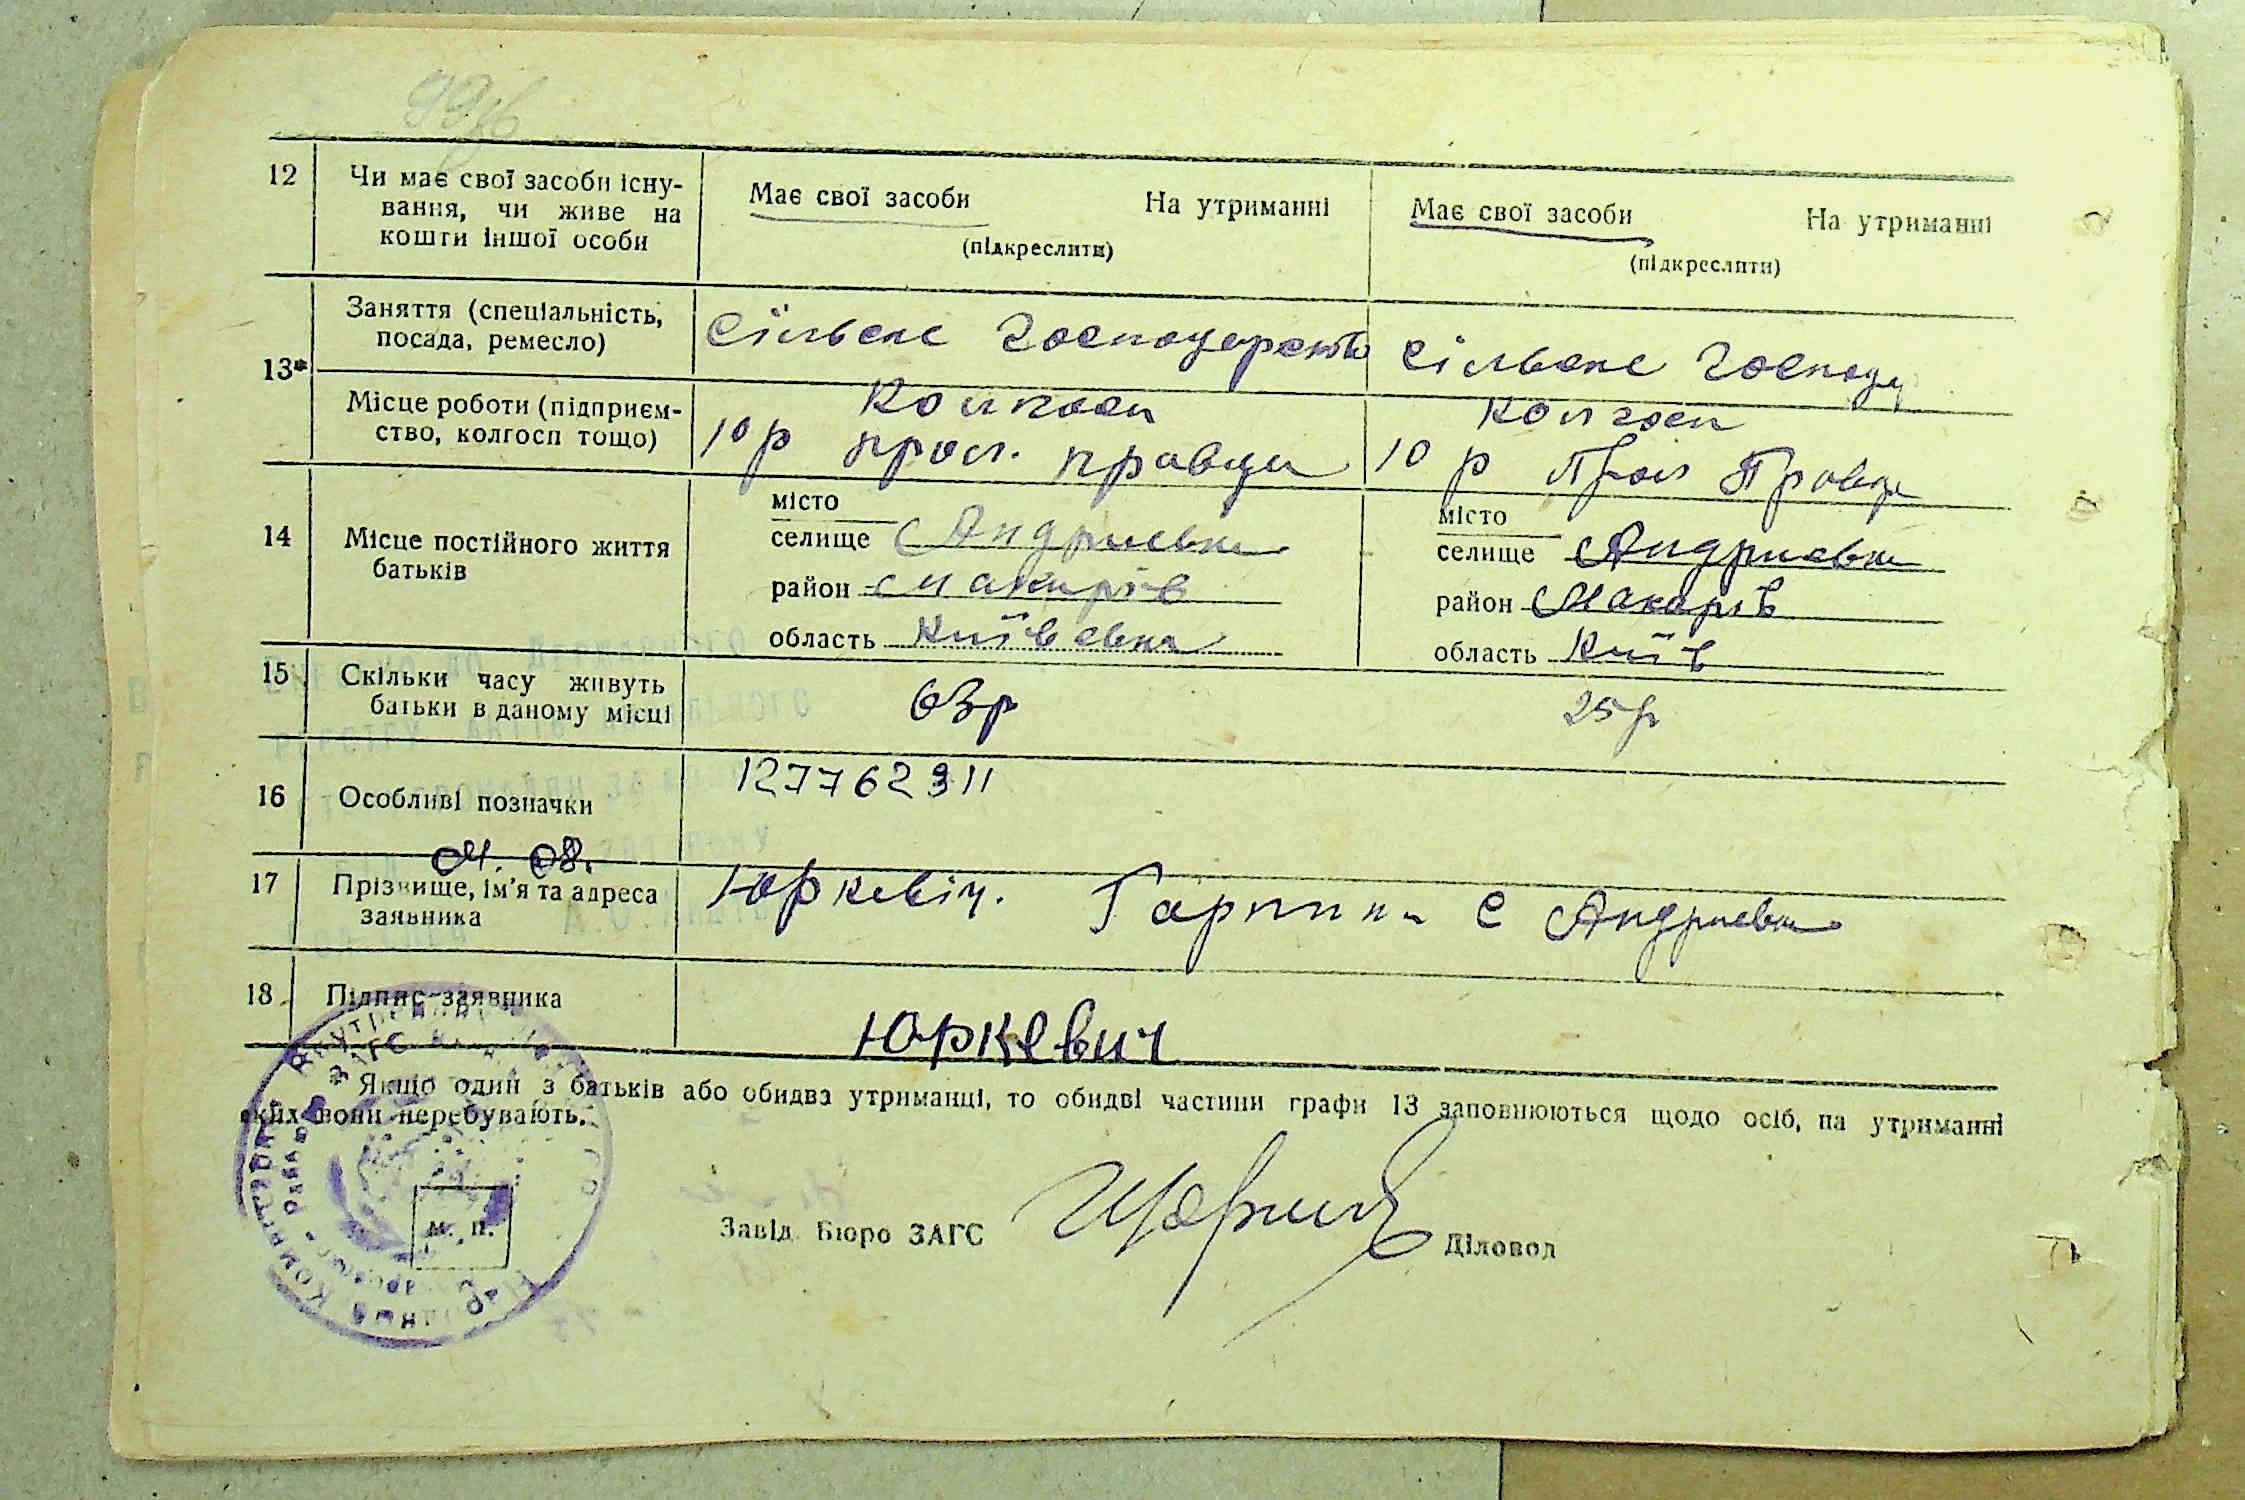 12
Чи має свої засоби існу-
вання, чи живе на
кошти іншої особи
Має свої засоби На утриманні
(підкреслити)
Має свої засоби На утриманні
(підкреслити)
13*
Заняття (спеціальність,
посада, ремесло)
Сільске господарство
Сільске господ
Місце роботи (підприєм-
ство, колгосп тощо)
Колгосп
10 р прол. правди
Колгосп
10 р Прол Правди
14
Місце постійного життя
батьків
місто
селище Андриевка
район Макарів
область Київська
місто
селище Андриевка
район Макарів
область Київ
15
Скільки часу живуть
батьки в даному місці
63р
25р
16
Особливі позначки
127762911
04. 08.
17
Прізвище, ім'я та адреса
заявника
Юркевіч. Гарпина С Андриевка
18
Підпис заявника
Юркевич
* Якщо один з батьків або обидва утриманці, то обидві частини графи 13 заповнюються щодо осіб, на утриманні
яких вони перебувають.
М. П.
Завід. Бюро ЗАГС
Діловод